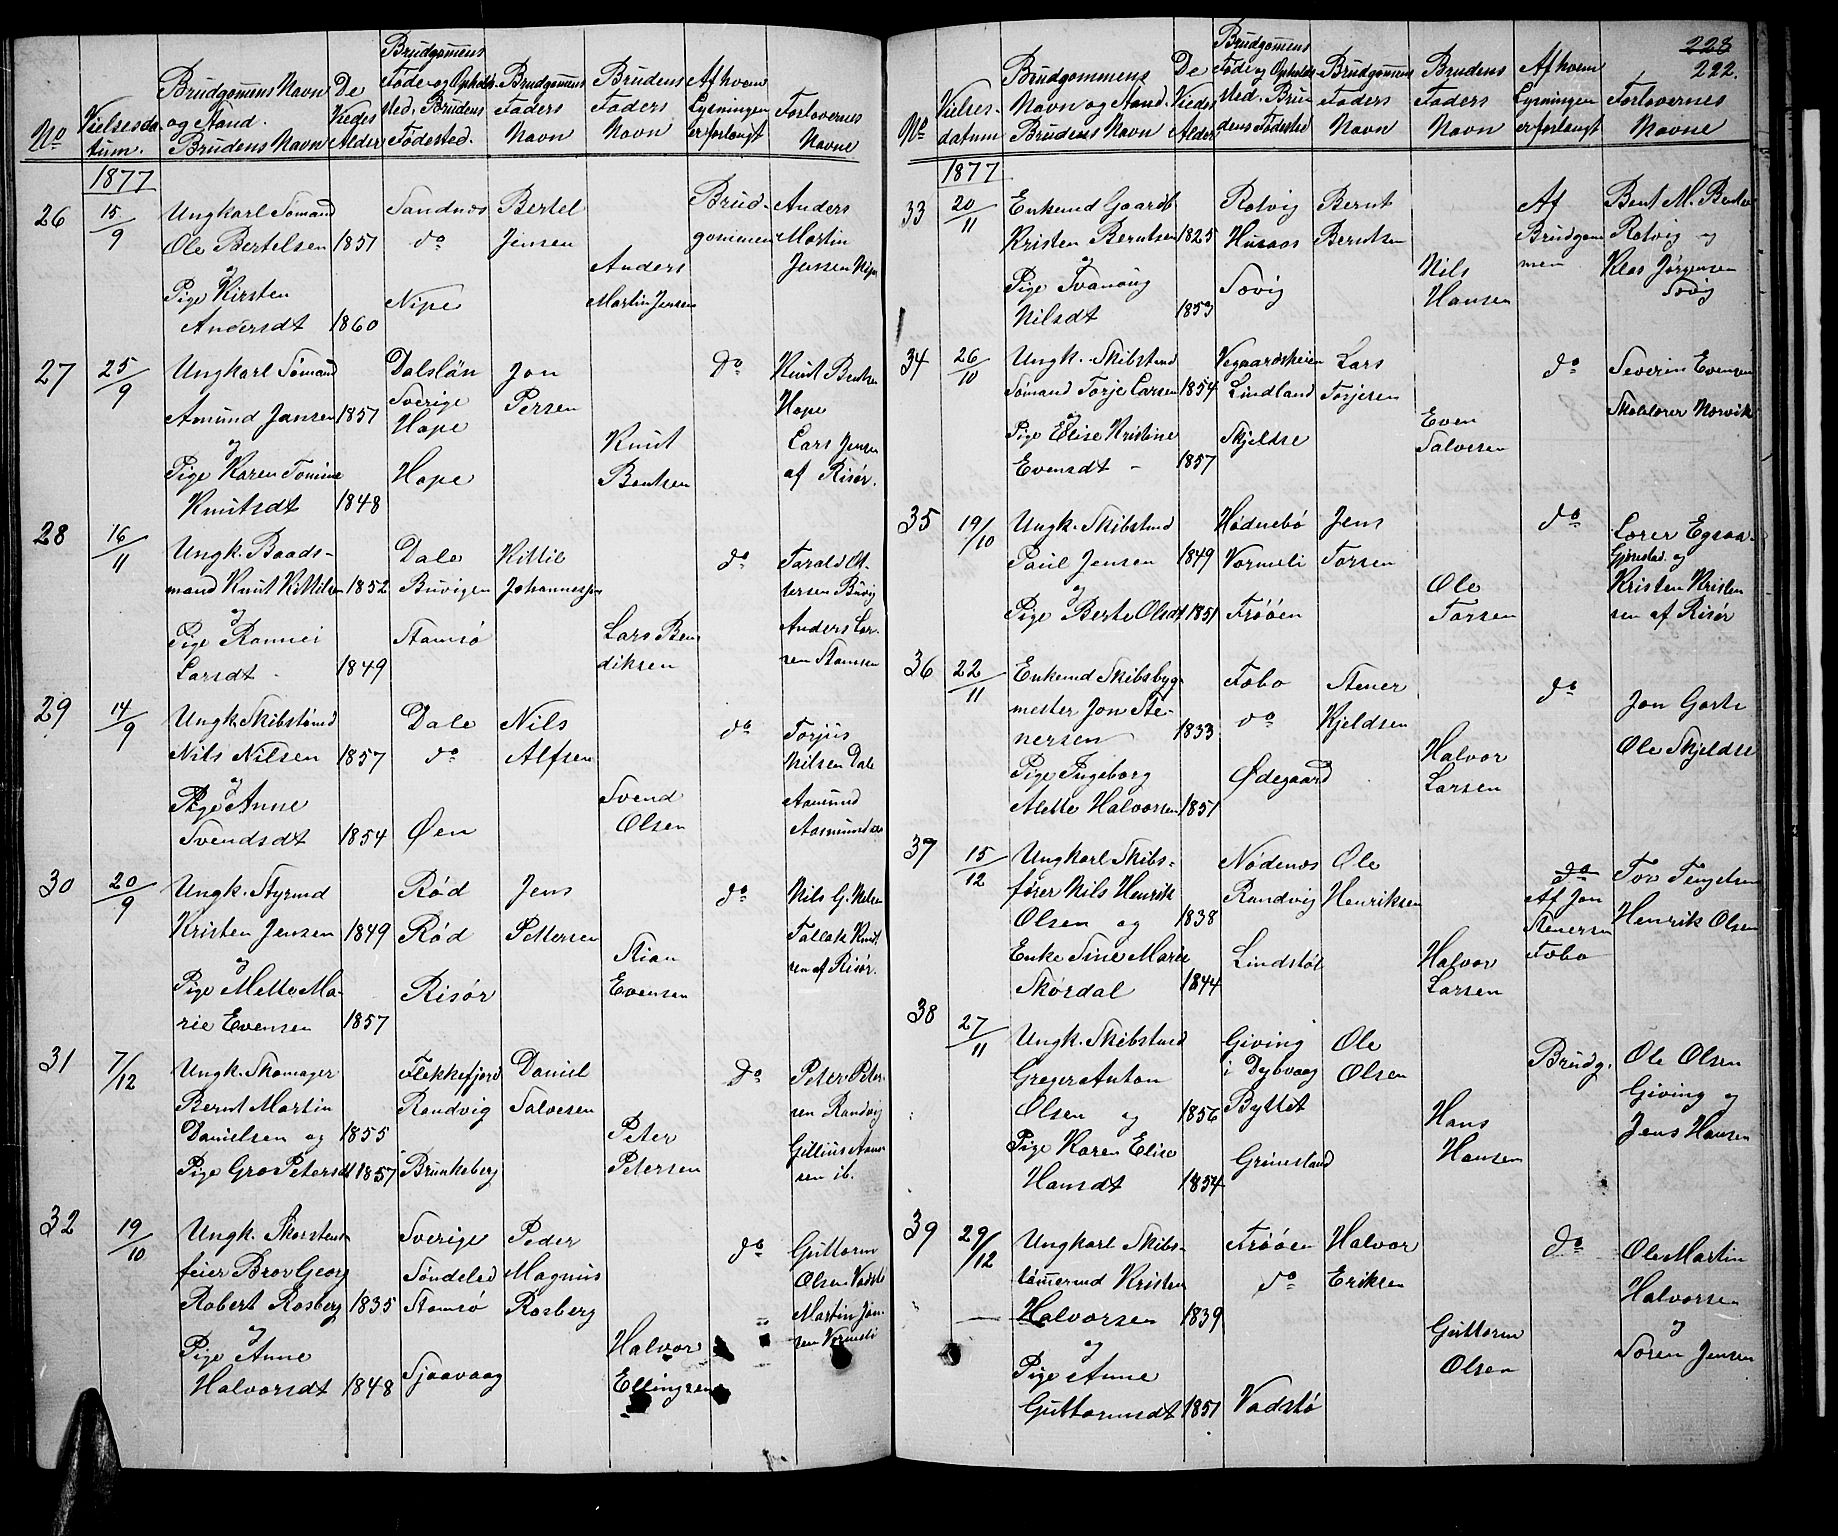 228
222.
No
Vielsesda-
tum.
Brudgomens Navn
og Stand.
Brudens Navn
De
Viedes
Alder
Brudgomens
Føde og Opholds
sted. Brudens
Fødested.
Brudgomens
Faders
Navn
Brudens
Faders
Navn
Af hvem
Lysningen
er forlangt
Forlovernes
Navne
1877
26 15/9 Ungkarl Sømand Sandnæs Bertel Brud- Anders
Ole Bertelsen 1851 do Jensen gommen Martin
og Anders Jensen Nipe
Pige Kirsten Nipe Martin Jensen
Andersdt 1860
27 25/9 Ungkarl Sømand Dalslän Jon do Knut Bentsen
Amund Jansen 1851 Sverige Persen Hope
og Hope Knut Lars Jensen
Pige Karen Tomine Hope Bentsen af Risør.
Knutsdt 1848
28 16/11 Ungk. Baads- Dale Kittil do Tarald Ot-
mand Knut Kittilsen 1852 Buvigen Johannessen tersen Buvig
og Anders Lar-
Pige Rannei Stamsø Lars Ben sen Stamsøe
Larsdt 1849 diksen
29 14/9 Ungk. Skibstømd Dale Nils do Torjus
Nils Nilsen 1857 do Alfsen Nilsen Dale
og Svend Aamund
Pige Anne Olsen Aasmundsen
Svendsdt 1854 Øen
30 20/9 Ungk. Styrmd Rød Jens do Nils G. Nilsen
Kristen Jensen 1849 Rød Pettersen Tallak Knut
og Stian sen af Risør.
Pige Mette Ma- Risør Evensen
rie Evensen 1857
31 7/12 Ungk. Skomager Flekkefjord Daniel do Peter Peter-
Bernt Martin Randvig Salvesen sen Randvig
Danielsen og 1855 Peter Gillius Aanon
Pige Gro Petersdt 1857 Brunkeberg Petersen sen ib.
32 19/10 Ungk. Skorstens- Sverige Peder do Guttorm
feier Bror Georg Søndeled Magnus Olsen Vadstø
Robert Rosberg 1835 Stamsø Rosberg Martin Jon-
og Halvor sen Vormeli
Pige Anne Sjaavaag Ellingsen
Halvorsdt 1848
No
Vielses-
datum
Brudgommens
Navn og Stand.
Brudens Navn
De
Viedes
Alder
Brudgomens
Føde og Opholds
sted. Bru-
dens Fødested
Brudgomens
Faders
Navn
Brudens
Faders
Navn
Af hvem
Lysningen
er forlangt
Forlovernes
Navne
1877
33 20/11 Enkemd Gaardb Rotvig Bernt Af Bent M. Bentsen
Kristen Berntsen 1825 Husaas Berntsen Brudgom Rotvig og
og Nils men Klas Jørgensen
Pige Svanaug Søvig Hansen Søvig
Nilsdt 1853
34 26/10 Ungk. Skibstmd Vegaardsheien Lars do Severin Evensen
Sømand Torje Larsen 1854 Lindland Torjesen
og Even Skolelærer Norvik
Pige Elise Kristine Skjeldse Salvesen
Evensdt - 1857
35 19/10 Ungk. Skibstmd Hødnebø Jens do Lærer
Paul Jensen 1849 Vormeli Torsen Gjerstad og
og Ole Kristen Kristen
Pige Berte Olsdt 1851 Frøøen Torsen sen af Risør
36 22/11 Enkemd Skibsbyg- Fobo Stener do Jon Garta
mester Jon Ste- do Kjeldsen
nersen 1833 Halvor Ole Skjeldse
Pige Ingeborg Ødegaard Larsen
Alette Halvorsen 1851
37 15/12 Ungkarl Skibs- Nødenæs Ole do Tov Tengelsen
fører Nils Henrik Randvig Henriksen Af Jon Henrik Olsen
Olsen og 1838 Stenersen
Enke Sine Marie Lindstøl Halvor Fobo
Skørdal 1844 Larsen
38 27/11 Ungk. Skibstmd Giving Ole Brudg. Ole Olsen
Greger Anton i Dybvaag Olsen Giving og
Olsen og 1856 Byttet Hans Jens Hansen
Pige Karen Elise Grimsland Hansen
Hansdt 1854
39 29/12 Ungkarl Skibs- Frøøen Halvor do Ole Martin
tømermd Kristen do Eriksen Halvorsen
Halvorsen 1839 Guttorm og
og Olsen Søren Jensen
Pige Anne
Guttormsdt 1851 Vadstø